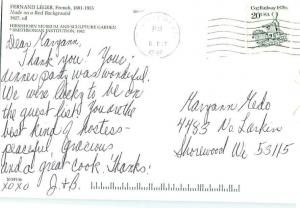 FERNAND LEGER, French, 1881-1955
Nude on a Red Background
1927, oil
HIRSHHORN MUSEUM AND SCULPTURE GARDEN
SMITHSONIAN INSTITUTION, 1982
Dear Maryann,
Thank you! Your
dinner party was wonderful.
We were lucky to be on
the guest list! You are the
best kind of hostess-
peaceful, gracious
and a great cook. Thanks!
XOXO J.+B.
Cog Railway 1870s
USA
20c
PM
Maryann Gedo
4483 No. Larkin
Shorewood Wi 53115